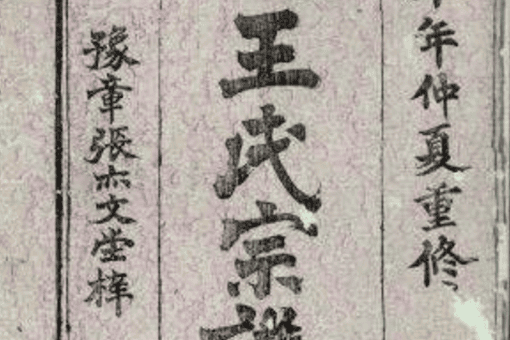 年仲夏重修
王氏宗譜
豫章張亦文堂梓